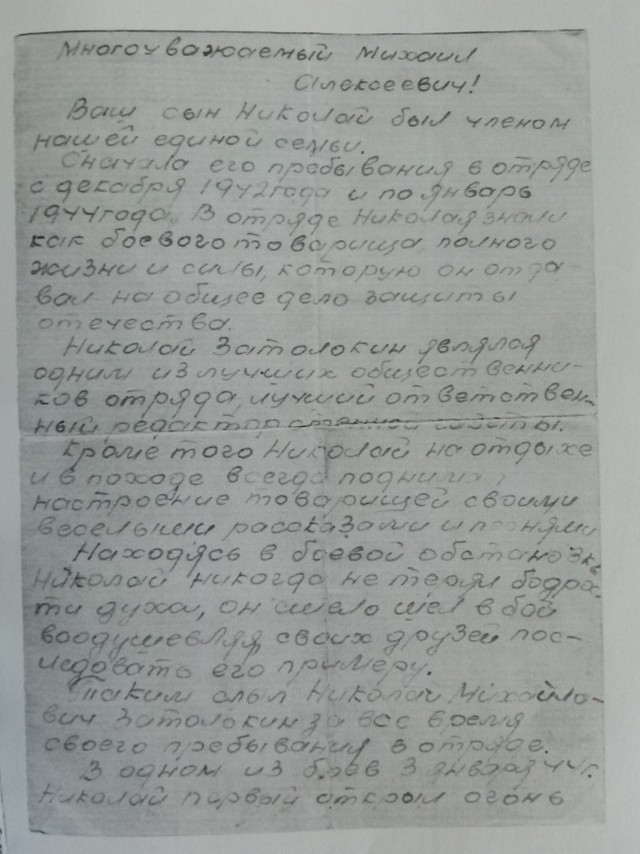 Многоуважаемый Михаил
Алексеевич!
Ваш сын Николай был членом
нашей единой семьи.
Сначала его пребывания в отряде
с декабря 1942года и по январь
1944года. В отряде Николая знали
как боевого товарища полного
жизни и силы, которую он отда-
вал на общее дело защиты
отечества.
Николай Затолокин являлся
одним из лучших общественни-
ков отряда, лучший ответствен-
ный редактор стенной газеты.
Кроме того Николай на отдыхе
и в походе всегда поднимал
настроение товарищей своими
веселыми рассказами и песнями
Находясь в боевой обстановке
Николай никогда не терял бодрос-
ти духа, он смело шел в бой
воодушевляя своих друзей пос-
ледовать его примеру.
Таким был Николай Михайло-
вич Затолокин за все время
своего пребывания в отряде.
В одном из боев 3 января 44г.
Николай первый открыл огонь